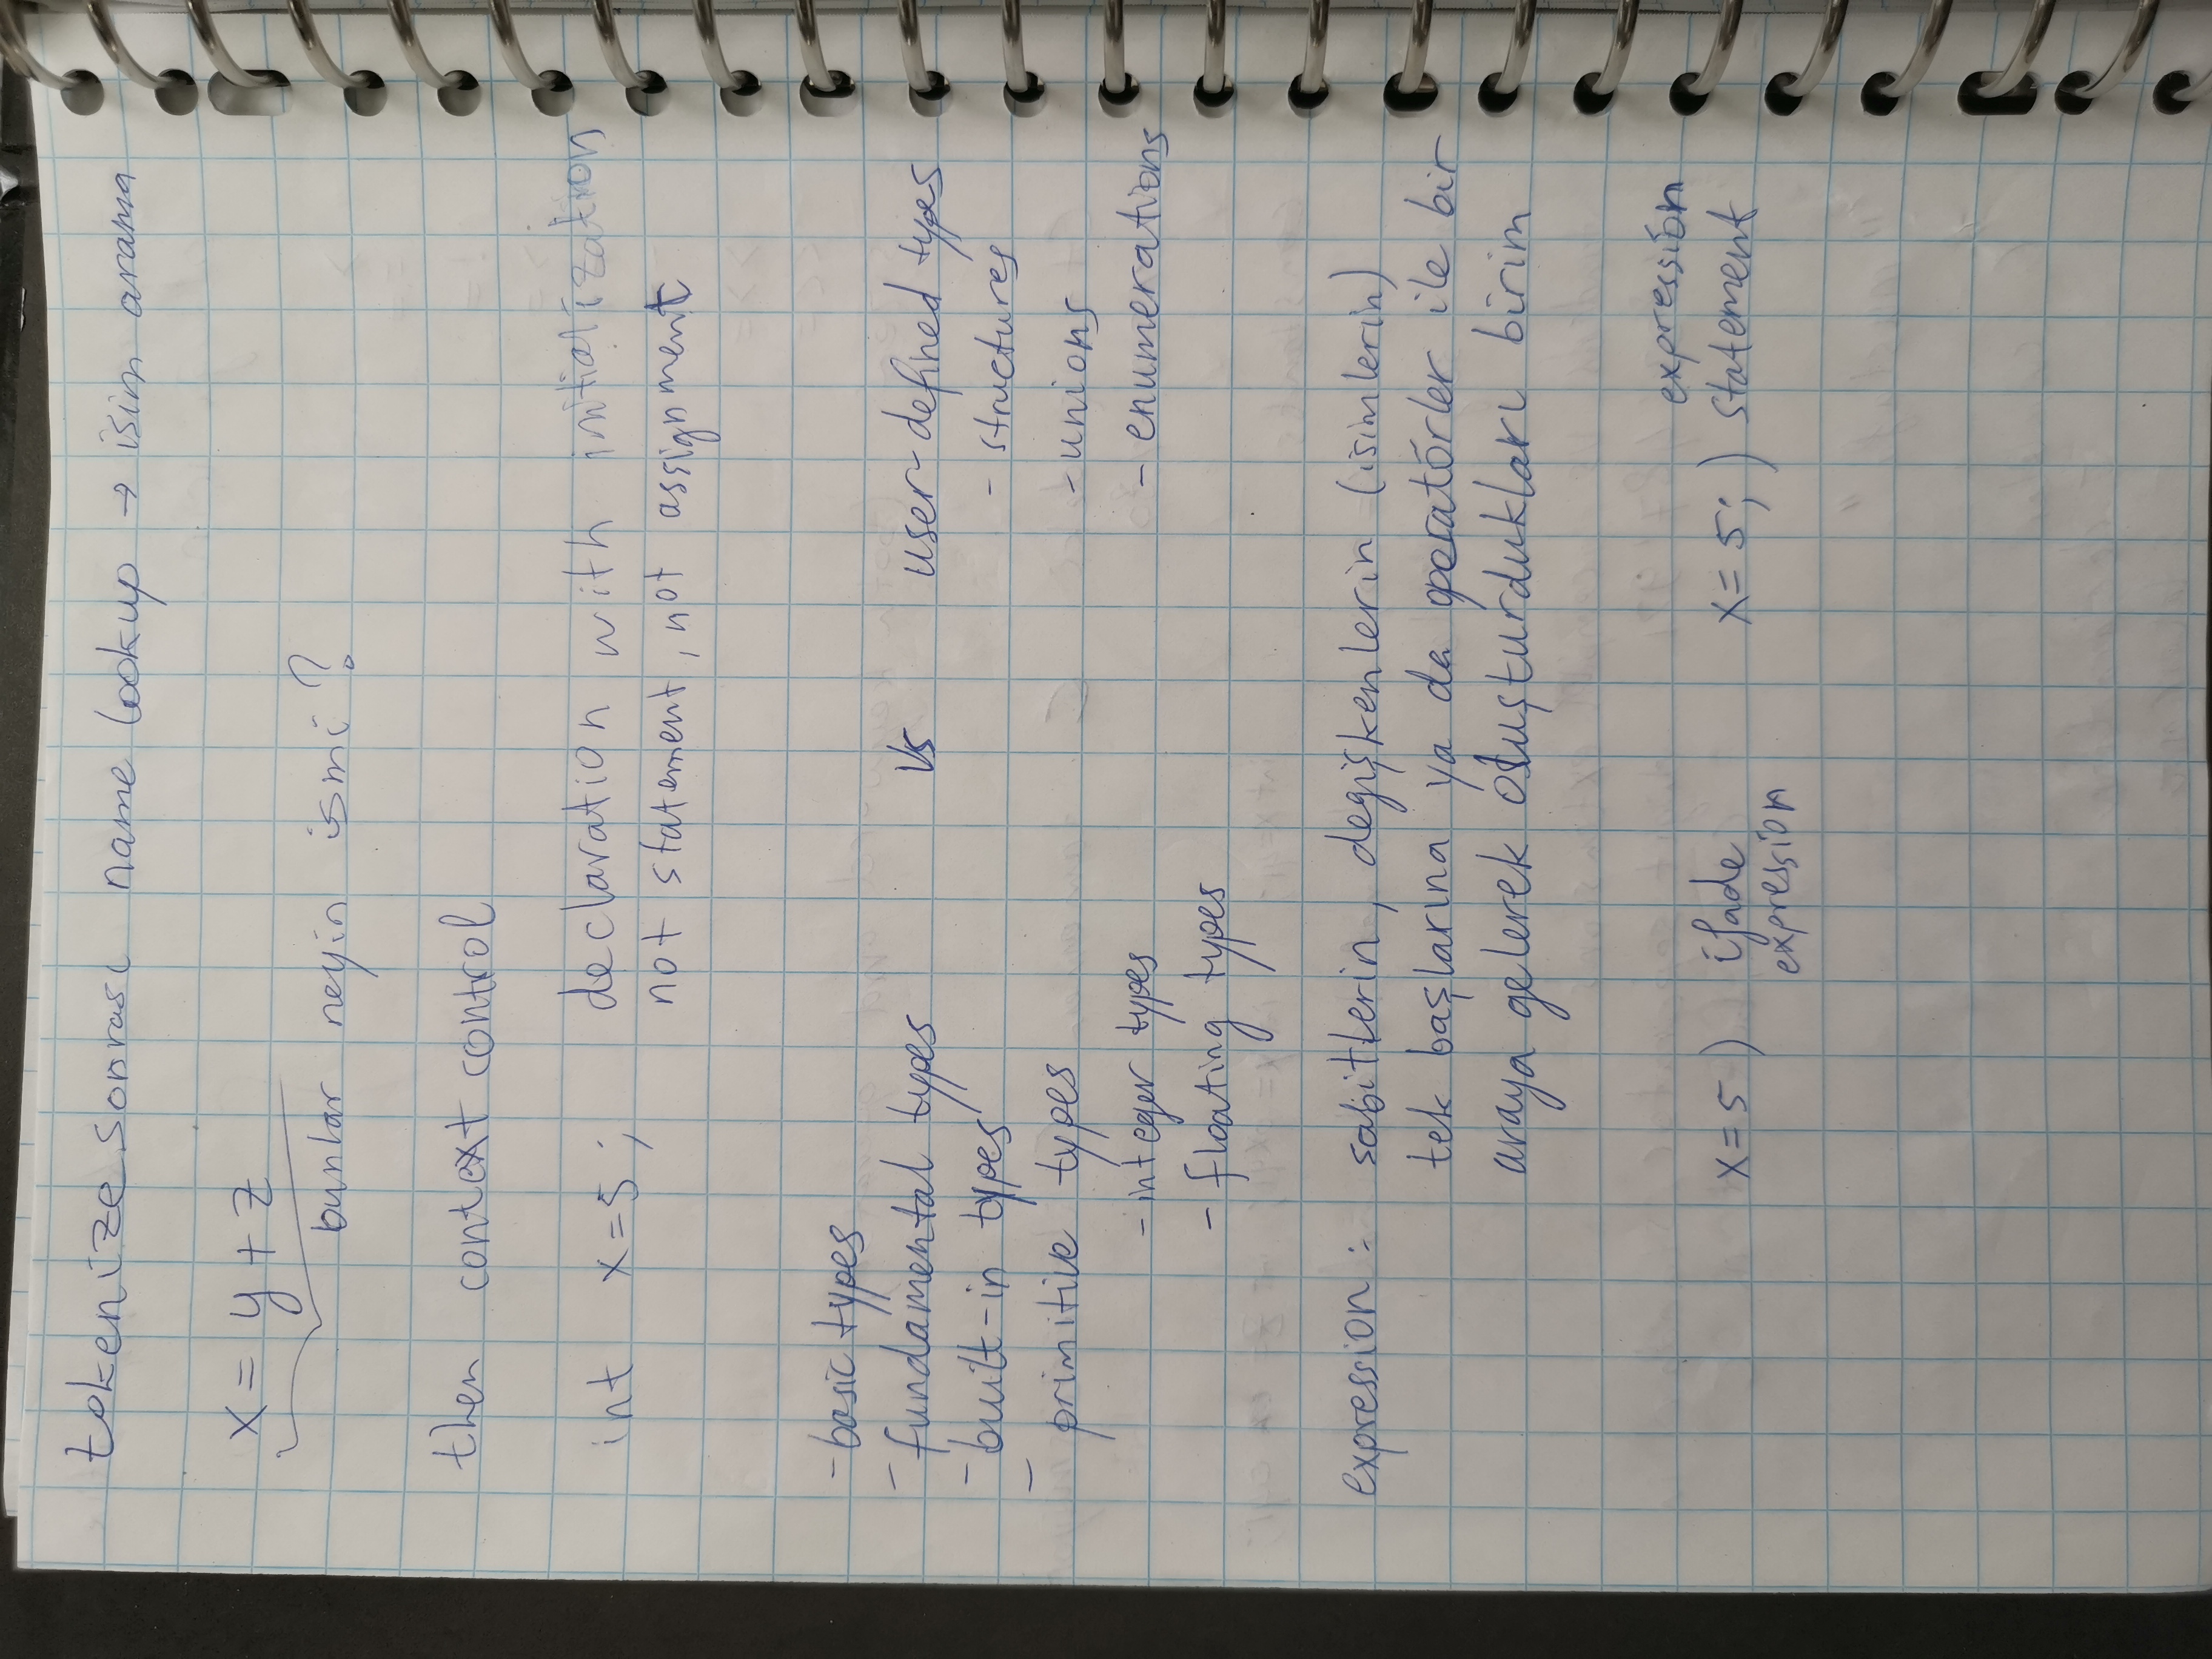 tokenize sonrası name lookup → isim arama
x = y + z
bunlar neyin ismi?
then context control
int x=5; declaration with initialization
not statement, not assignment
- basic types
- fundamental types Vs user-defined types
- built-in types - structures
- primitive types - unions
- integer types - enumerations
- floating types
expression : sabitlerin, degişkenlerin (isimlerin)
tek başlarına ya da operatörler ile bir
araya gelerek oluşturdukları birim
expression
x=5 ) ifade x=5; ) statement
expression